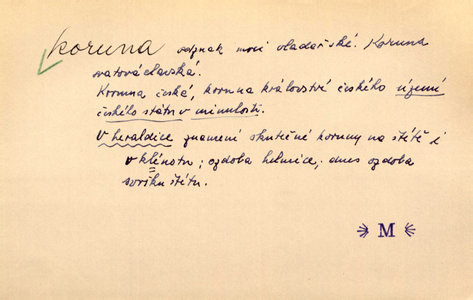 koruna odznak moci vladařské. Koruna
svatováclavská.
Koruna česká, koruna království českého území
českého státu v minulosti.
V heraldice znamení skutečné koruny na štítě i
v klénotu; ozdoba helmice; dnes ozdoba
svršku štítu.
M